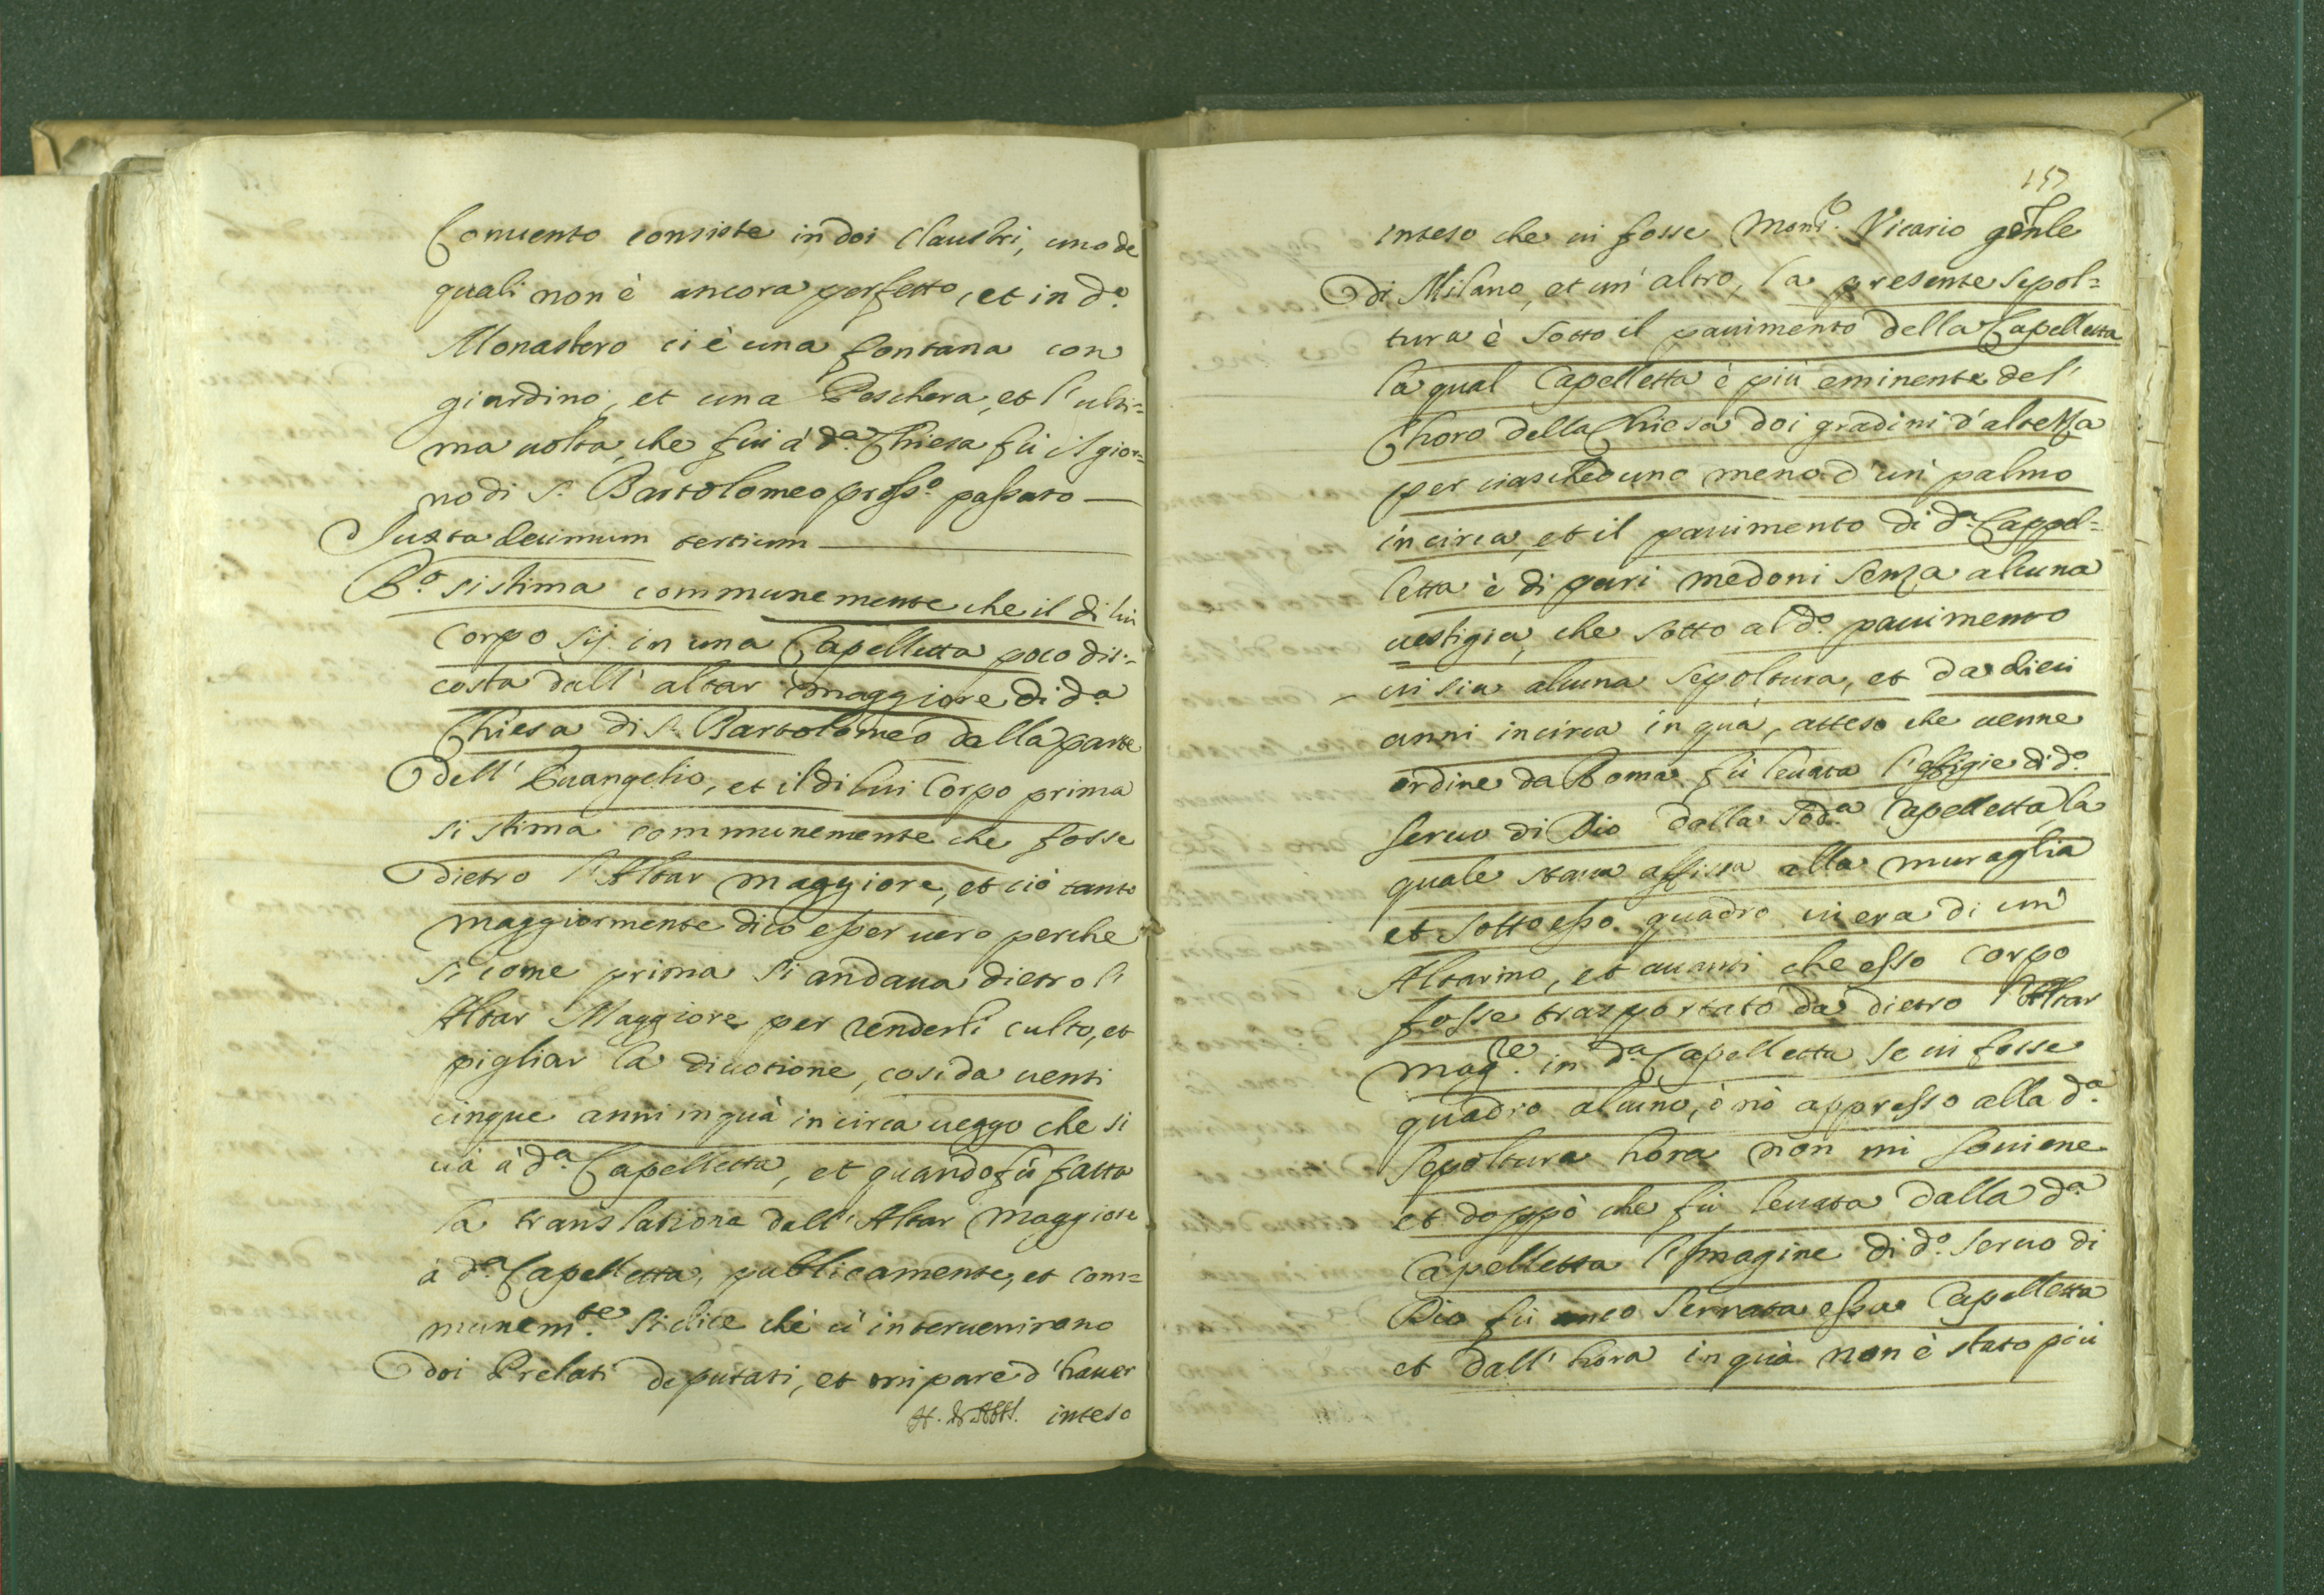 Conuento consiste in doi Claustri, uno de
quali non è ancora perfetto, et in d.o
Monastero ci è una fontana con
giardino, et una Peschera, et l'ulti=
ma uolta, che fui à d.a Chiesa fù il gior=
no di S. Bartolomeo pross.o passato —
Iuxta decimum tertium —
R.o si stima communemente che il di lui
Corpo sij in una Capelletta poco dis=
costa dall' altar maggiore di d.a
Chiesa di S. Bartolomeo dalla parte
dell' Euangelio, et il di lui Corpo prima
si stima communemente che fosse
dietro l'Altar maggiore, et ciò tanto
maggiormente dico esser uero perche
si come prima si andaua dietro l'
Altar Maggiore per renderli culto, et
pigliar la diuotione, cosi da uenti
cinque anni in quà in circa ueggo che si
uà à d.a Capelletta, et quando fù fatta
la translatione dall' Altar Maggiore
à d.a Capelletta, publicamente, et com=
munem.te si dice che ui interuenirono
doi Prelati deputati, et mi pare d'hauer
inteso
157
inteso che ui fosse Mons.r Vicario gen̄le
di Milano, et un' altro, la presente sepol=
tura è sotto il pauimento della Capelletta
la qual Capelletta è più eminente del'
Choro della Chiesa doi gradini d'altezza
per ciascheduno meno d'un' palmo
incirca, et il pauimento di d.a Cappel=
letta è di puri medoni senza alcuna
uestigia, che sotto al d.o pauimento
ui sia alcuna sepoltura, et da dieci
anni incirca in quà, atteso che uenne
ordine da Roma fù leuata l'effigie di d.o
seruo di Dio dalla sod.a Capelletta, la
quale staua affissa alla muraglia
et sotto esso quadro ui era di un'
Altarino, et auanti che esso corpo
fosse trasportato da dietro l'Altar
mag.re in d.a Capelletta se ui fosse
quadro alcuno, ò nò appresso alla d.a
sepoltura hora non mi souiene
et doppò che fù leuata dalla d.a
Capelletta l'Imagine di d.o seruo di
Dio fù anco serrata essa Capelletta
et dall' hora in quà non è stato più